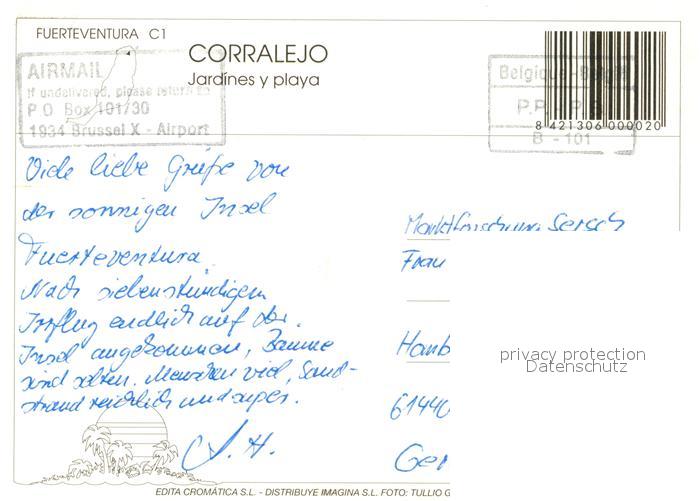 FUERTEVENTURA C1
CORRALEJO
Jardínes y playa
AIRMAIL
If undelivered, please return to
P O Box 101/30
1934 Brussel X - Airport
Belgique - België
P.P. - P.B.
B - 101
8 421306 000020
Viele liebe Grüße von
der sonnigen Insel
Fuerteventura.
Nach siebenstündigem
Irrflug endlich auf der
Insel angekommen, Bäume
sind selten. Menschen viel, Sand-
strand reichlich und super.
Marktforschung Sersch
Frau
Homb
61440
Ger
privacy protection
Datenschutz
EDITA CROMÁTICA S.L. - DISTRIBUYE IMAGINA S.L. FOTO: TULLIO G